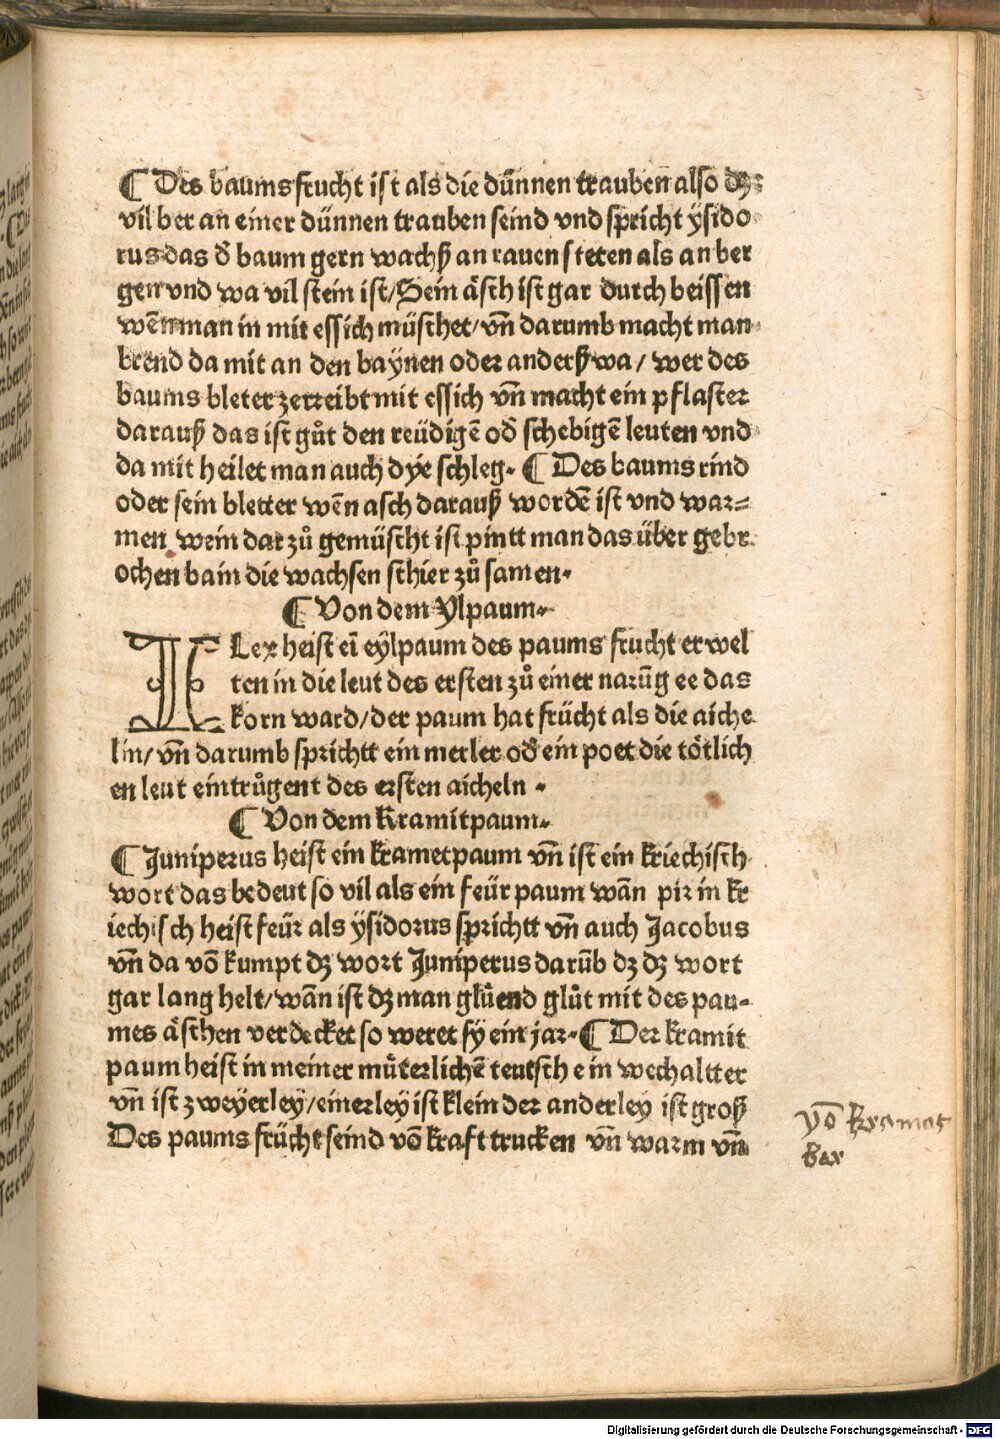 ¶ Des baums frucht ist als die dünnen trauben also dz
vil ber an einer dünnen trauben seind vnd spricht ÿsido
rus das d̕ baum gern wachß an rauen steten als an ber
gen vnd wa vil stein ist/Sein äsch ist gar durch beissen
wēn man in mit essich müschet/vn̄ darumb macht man
brend da mit an den baÿnen oder anderßwa/ wer des
baums bleter zerreibt mit essich vn̄ macht ein pflaster
darauß das ist gůt den reüdigē od̕ schebigē leuten vnd
da mit heilet man auch dÿe schleg. ¶ Des baums rind
oder sein bletter wēn asch darauß wordē ist vnd war=
men wein dar zů gemüscht ist pintt man das über gebr
ochen bain die wachsen schier zů samen.
¶ Von dem Ylpaum.
ILex heist eī eÿlpaum des paums frucht erwel
ten in die leut des ersten zů einer narūg ee das
korn ward/der paum hat frücht als die aiche
lin/ vn̄ darumb sprichtt ein metler od̕ ein poet die tötlich
en leut eintrůgent des ersten aicheln .
¶ Von dem Kramitpaum.
¶ Juniperus heist ein krametpaum vn̄ ist ein kriechisch
wort das bedeut so vil als ein feür paum wān pir in kr
iechisch heist feür als ÿsidorus sprichtt vn̄ auch Jacobus
vn̄ da vō kumpt dz wort Juniperus darūb dz dz wort
gar lang helt/wān ist dz man glüend glůt mit des pau=
mes äschen verdecket so weret sÿ ein jar. ¶ Der kramit
paum heist in meiner müterlichē teutsch ein wechaltter
vn̄ ist zweÿerleÿ/einerleÿ ist klein der anderleÿ ist groß
Des paums frücht seind vō kraft trucken vn̄ warm vn̄
vō kramat
ber
Digitalisierung gefördert durch die Deutsche Forschungsgemeinschaft - DFG